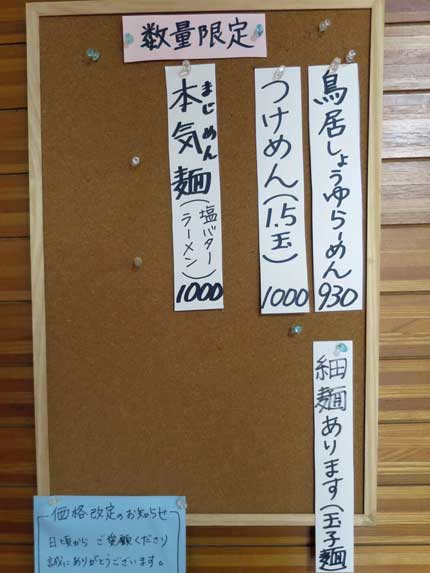 数量限定
鳥居しょうゆらーめん 930
つけめん(1.5玉) 1000
まじめん
本気麺(塩バターラーメン) 1000
細麺あります(玉子麺)
価格改定のお知らせ
日頃から ご愛顧くださり
誠にありがとうございます。